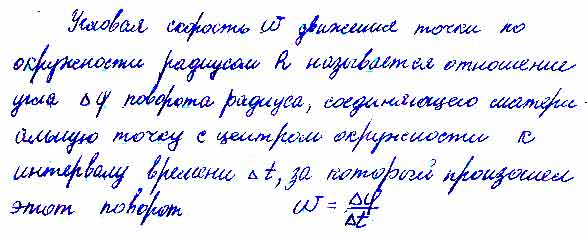 Угловая скорость ω движения точки по
окружности радиусом R называется отношение
угла Δφ поворота радиуса, соединяющего матери-
альную точку с центром окружности к
интервалу времени Δt, за который произошел
этот поворот ω = Δφ/Δt